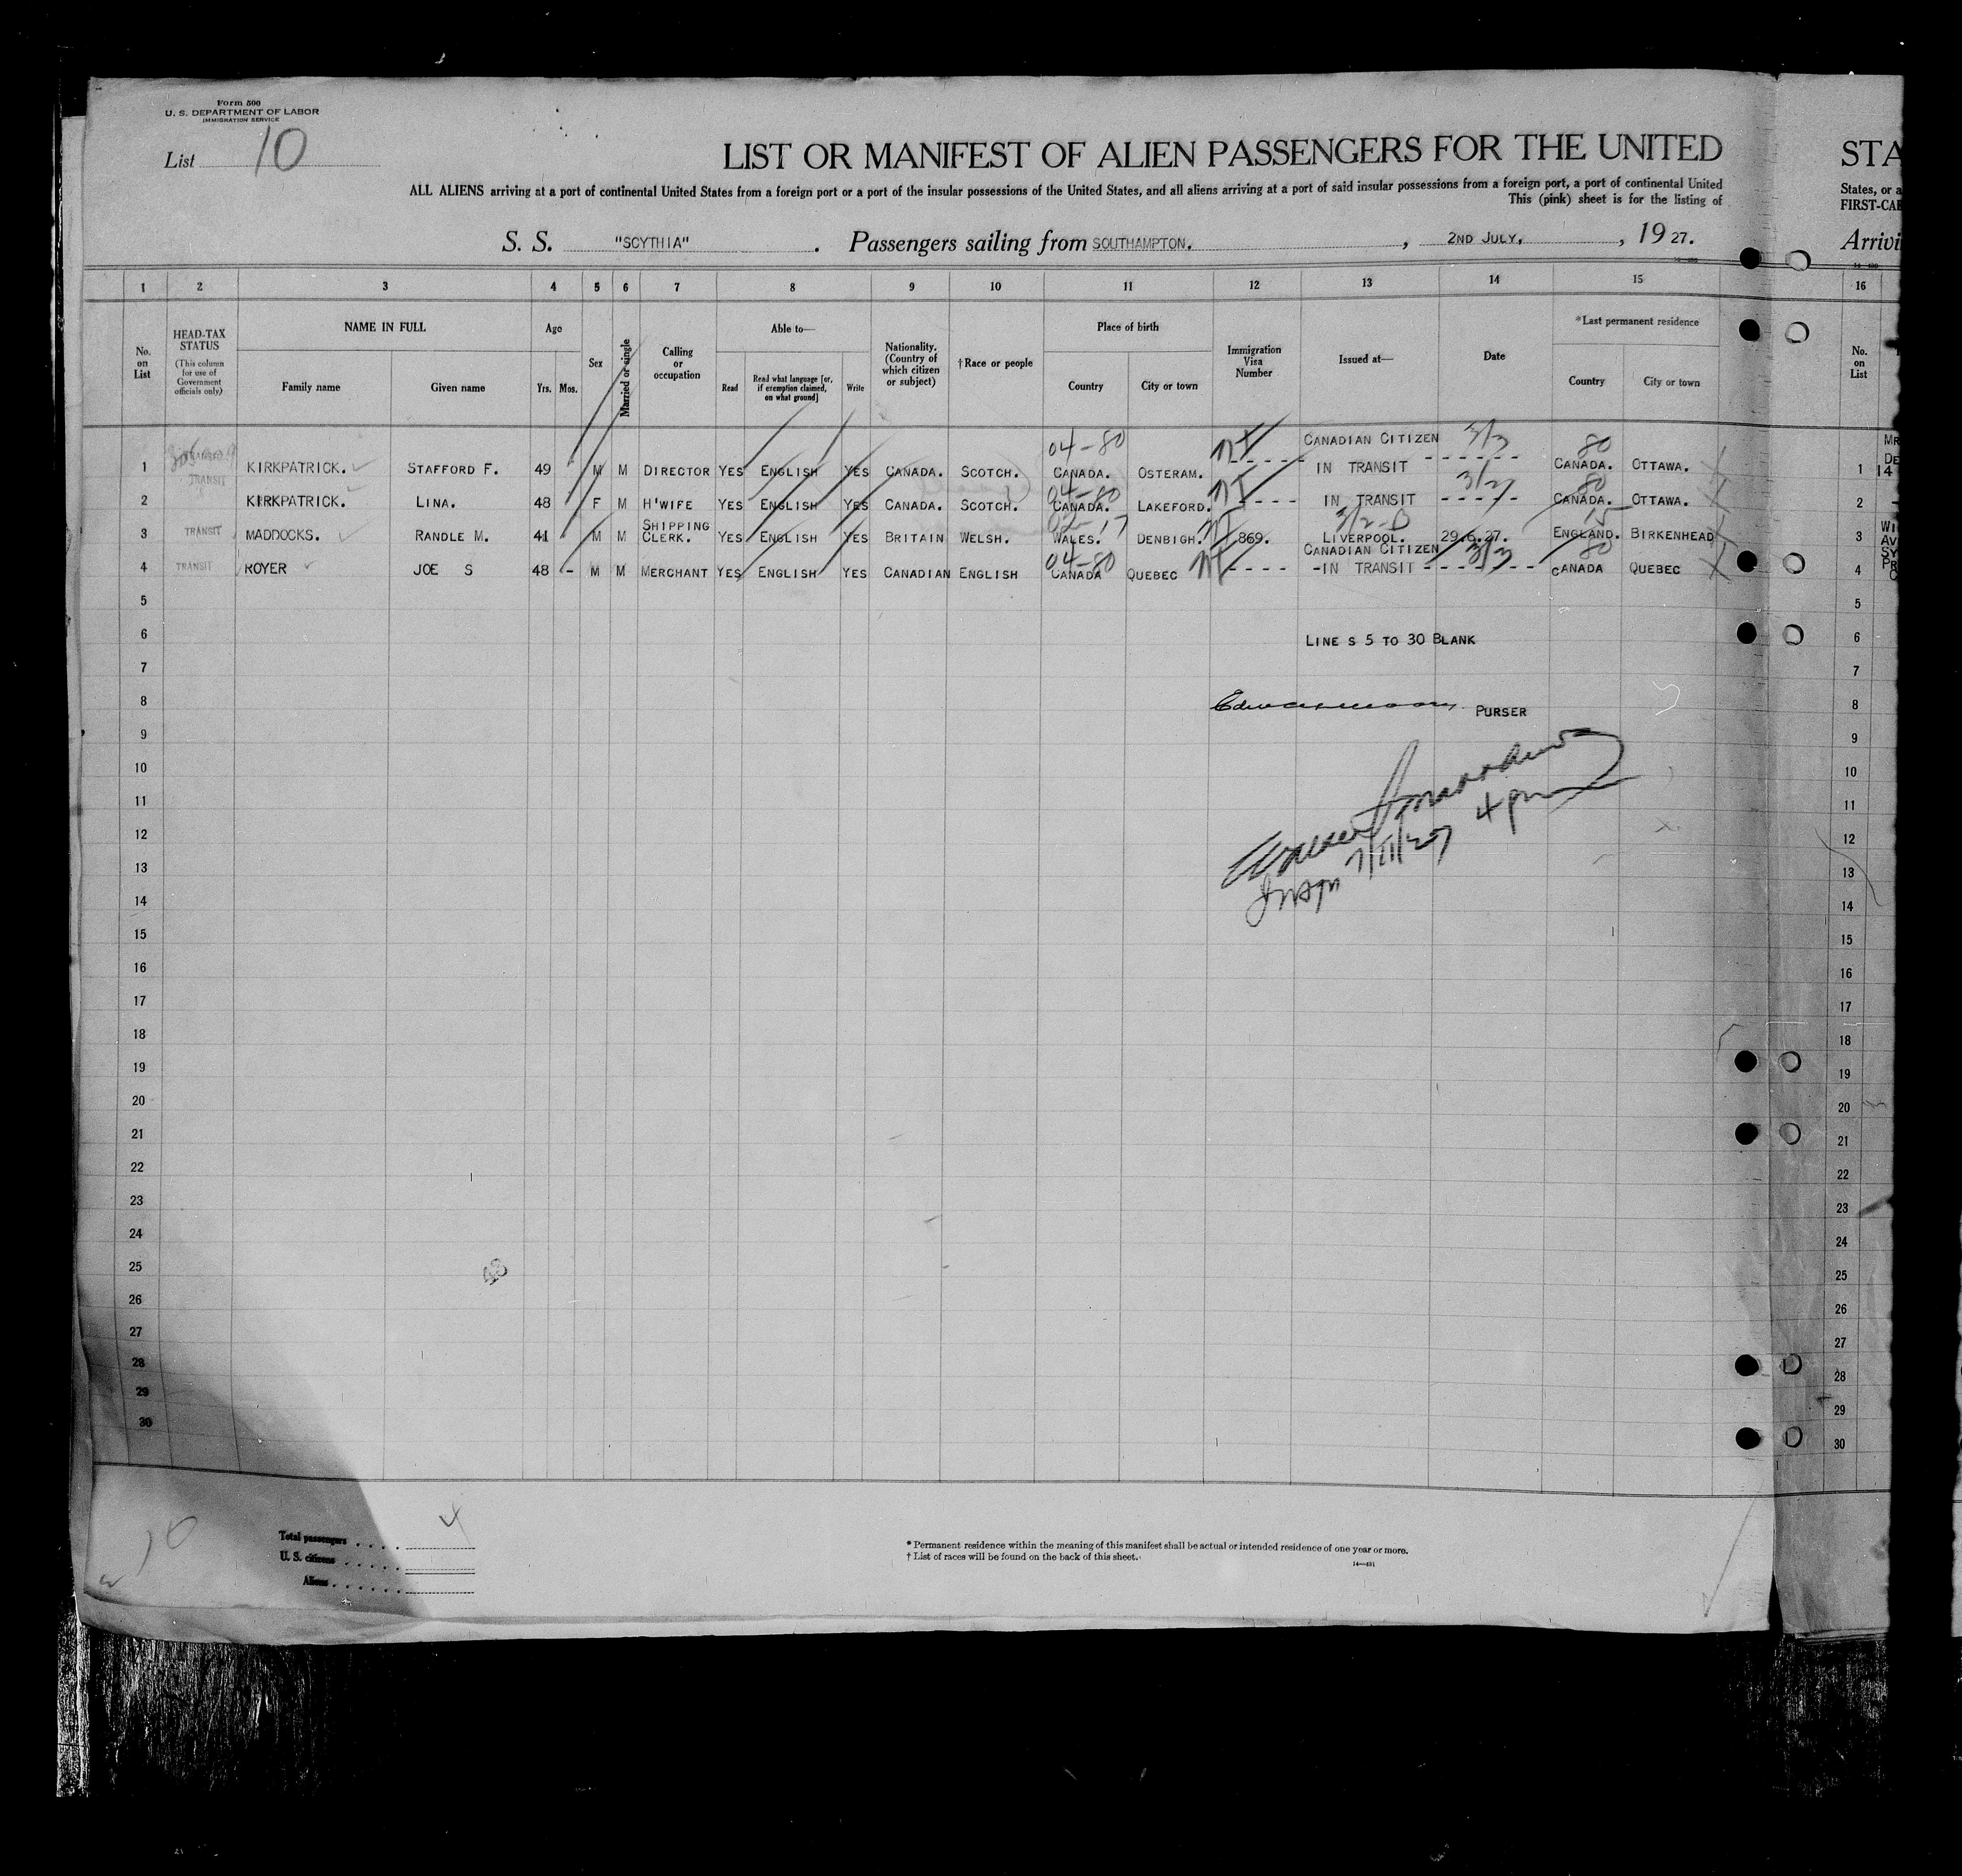 Form 500
U. S. DEPARTMENT OF LABOR
IMMIGRATION SERVICE
List 10
LIST OR MANIFEST OF ALIEN PASSENGERS FOR THE UNITED
STA
ALL ALIENS arriving at a port of continental United States from a foreign port or a port of the insular possessions of the United States, and all aliens arriving at a port of said insular possessions from a foreign port, a port of continental United
States, or a
This (pink) sheet is for the listing of
FIRST-CAB
S. S. "SCYTHIA". Passengers sailing from SOUTHAMPTON., 2ND JULY., 1927.
Arrivi
1 2 3 4 5 6 7 8 9 10 11 12 13 14 15 16
No. on List
HEAD-TAX STATUS
(This column for use of Government officials only)
NAME IN FULL
Family name Given name
Age
Yrs. Mos.
Sex
Married or single
Calling or occupation
Able to—
Read
Read what language [or, if exemption claimed, on what ground]
Write
Nationality. (Country of which citizen or subject)
†Race or people
Place of birth
Country City or town
Immigration Visa Number
Issued at—
Date
*Last permanent residence
Country City or town
No. on List
04-80 NT CANADIAN CITIZEN 80
1 TRANSIT KIRKPATRICK. STAFFORD F. 49 M M DIRECTOR YES ENGLISH YES CANADA. SCOTCH. CANADA. OSTERAM. ----- IN TRANSIT ------ CANADA. OTTAWA. 1 14
04-80 NT 80
2 KIRKPATRICK. LINA. 48 F M H'WIFE YES ENGLISH YES CANADA. SCOTCH. CANADA. LAKEFORD. ---- IN TRANSIT ----- CANADA. OTTAWA. 2
17 NT 15
3 TRANSIT MADDOCKS. RANDLE M. 41 M M SHIPPING CLERK. YES ENGLISH YES BRITAIN WELSH. WALES. DENBIGH. 869. LIVERPOOL. 29.6.27. ENGLAND. BIRKENHEAD 3
04-80 NT CANADIAN CITIZEN 80
4 TRANSIT ROYER JOE S 48 - M M MERCHANT YES ENGLISH YES CANADIAN ENGLISH CANADA QUEBEC ---- -IN TRANSIT ------- CANADA QUEBEC 4
5 5
6 LINE S 5 TO 30 BLANK 6
7 7
8 PURSER 8
9 9
10 10
11 4 pm 11
12 7/11/27 12
13 Insp 13
14 14
15 15
16 16
17 17
18 18
19 19
20 20
21 21
22 22
23 23
24 24
25 48 25
26 26
27 27
28 28
29 29
30 30
10
Total passengers 4
U. S. citizens
Aliens
* Permanent residence within the meaning of this manifest shall be actual or intended residence of one year or more.
† List of races will be found on the back of this sheet.
14—431